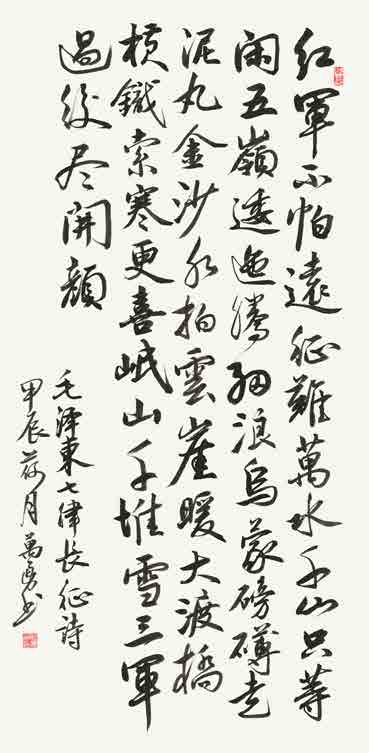 红軍不怕遠征難萬水千山只等
閑五嶺逶迤騰細浪烏蒙磅礴走
泥丸金沙水拍雲崖暖大渡橋
横鐵索寒更喜岷山千堆雪三軍
過後尽開顔
毛澤東七律長征詩
甲辰荷月萬勇书